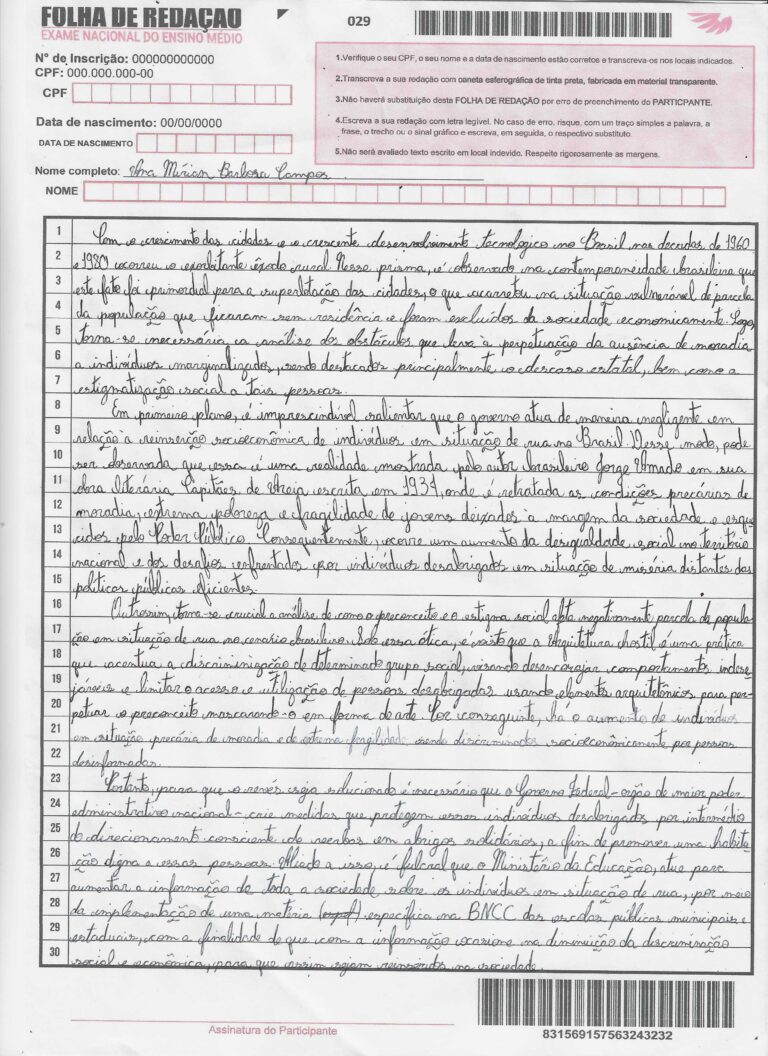 FOLHA DE REDAÇÃO
EXAME NACIONAL DO ENSINO MÉDIO
029
N° de Inscrição: 000000000000
CPF: 000.000.000-00
CPF
Data de nascimento: 00/00/0000
DATA DE NASCIMENTO
1.Verifique o seu CPF, o seu nome e a data de nascimento estão corretos e transcreva-os nos locais indicados.
2.Transcreva a sua redação com caneta esferográfica de tinta preta, fabricada em material transparente.
3.Não haverá substituição desta FOLHA DE REDAÇÃO por erro de preenchimento do PARTICIPANTE.
4.Escreva a sua redação com letra legível. No caso de erro, risque, com um traço simples a palavra, a
frase, o trecho ou o sinal gráfico e escreva, em seguida, o respectivo substituto.
5.Não será avaliado texto escrito em local indevido. Respeite rigorosamente as margens.
Nome completo: Ana Mirian Barbosa Campos
NOME
1 Com o crescimento das cidades e o crescente desenvolvimento tecnologico no Brasil nas decadas de 1960
2 e 1980 ocorreu o exorbitante êxodo rural. Nesse prisma, é observado na contemporaneidade brasileira que
3 este fato foi primordial para a superlotação das cidades, o que acarretou na situação vulnerável de parcela
4 da população que ficaram sem residência e foram excluídos da sociedade economicamente. Logo,
5 torna-se necessária a análise dos obstáculos que leva à perpetuação da ausência de moradia
6 a indivíduos marginalizados, sendo destacados principalmente o descaso estatal, bem como a
7 estigmatização social a tais pessoas.
8 Em primeiro plano, é imprescindível salientar que o governo atua de maneira negligente em
9 relação à reinserção socioeconômica de indivíduos em situação de rua no Brasil. Desse modo, pode
10 ser observada que essa é uma realidade mostrada pelo autor brasileiro Jorge Amado em sua
11 obra literária Capitães de Areia escrita em 1937, onde é retratada as condições precárias de
12 moradia, extrema pobreza e fragilidade de jovens deixados à margem da sociedade e esque
13 cidos pelo Poder Público. Consequentemente, ocorre um aumento da desigualdade social no território
14 nacional e dos desafios enfrentados por indivíduos desabrigados em situação de miséria distantes das
15 políticas públicas eficientes.
16 Outrossim, torna-se crucial a análise de como o preconceito e o estigma social afeta negativamente parcela da popula-
17 ção em situação de rua no cenário brasileiro. Sob essa ótica, é visto que a Arquitetura hostil é uma prática
18 que acentua a discriminização de determinado grupo social, visando desencorajar comportamentos indese-
19 jáveis e limitar o acesso e utilização de pessoas desabrigadas usando elementos arquitetônicos para per-
20 petuar o preconceito mascarando-o em forma de arte. Por conseguinte, há o aumento de indivíduos
21 em situação precária de moradia e de extrema fragilidade sendo discriminados socioeconômicamente por pessoas
22 desinformadas.
23 Portanto, para que o revés seja solucionado é necessário que o Governo Federal - orgão de maior poder
24 administrativo nacional - crie medidas que protegem esses indivíduos desabrigados por intermédio
25 do direcionamento consciente de verbas em abrigos solidários, a fim de promover uma habita-
26 ção digna a essas pessoas. Aliado a isso, é fulcral que o Ministério da Educação, atue para
27 aumentar a informação de toda a sociedade sobre os indivíduos em situação de rua, por meio
28 da implementação de uma matéria específica na BNCC das escolas públicas municipais e
29 estaduais, com a finalidade de que com a informação ocasione na diminuição da discriminação
30 social e econômica, para que assim sejam reinseridos na sociedade.
Assinatura do Participante
831569157563243232